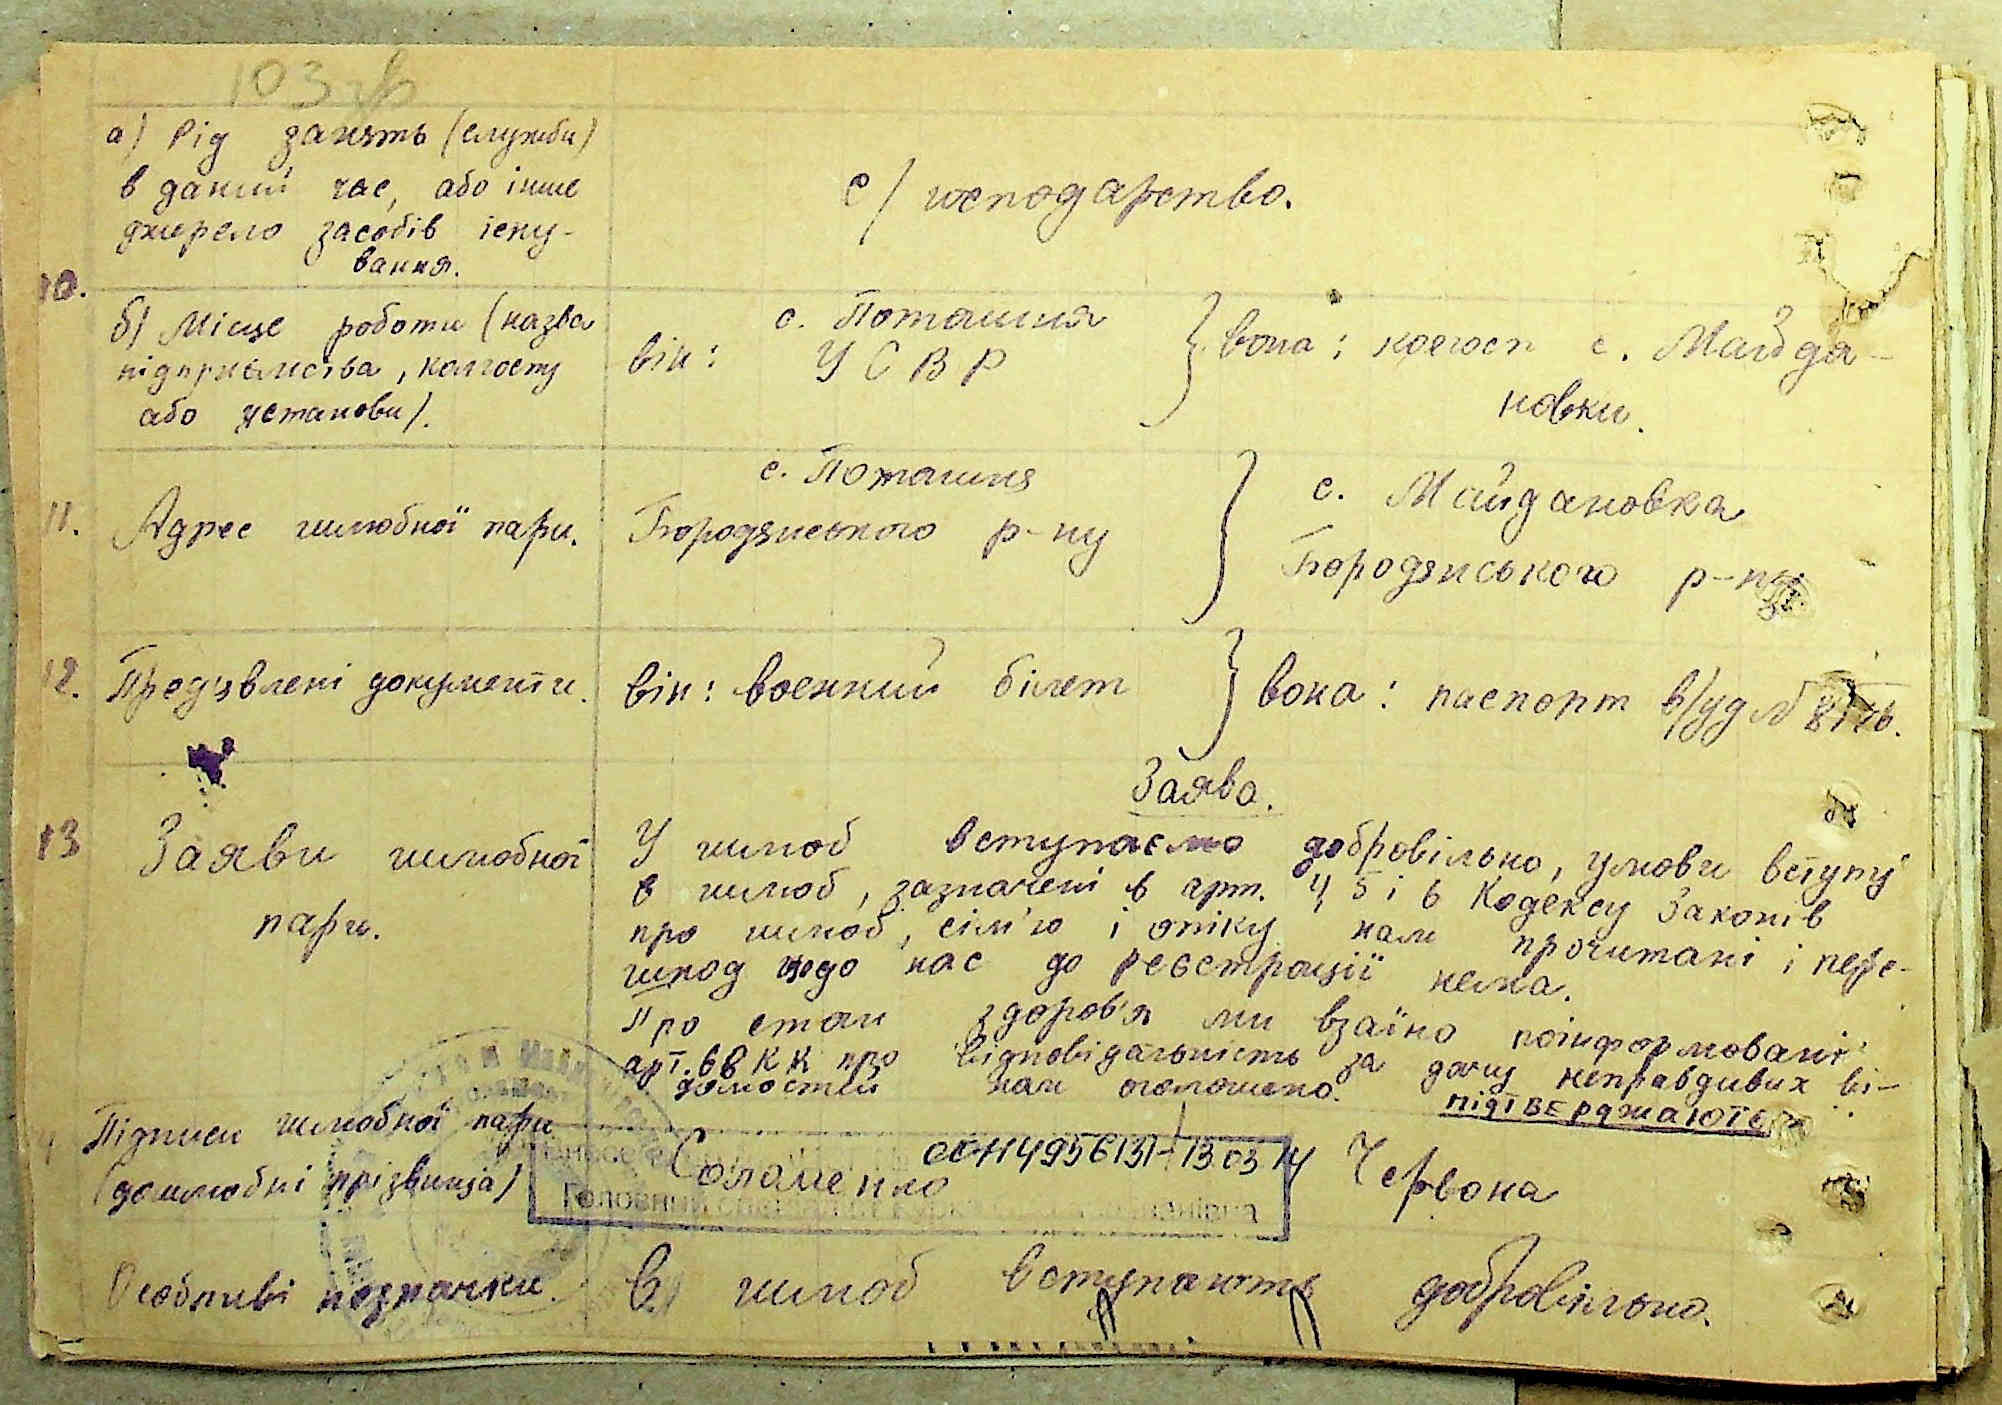 103 зв
а) Рід занять (служби)
в даний час, або інше
джерело засобів існу-
вання.
с/господарство.
10.
б) Місце роботи (назва
підприємства, колгоспу
або установи).
він:
с. Поташня
УСВР
вона: колгосп с. Майда-
новки.
11.
Адрес шлюбної пари.
с. Поташня
Бородянського р-ну
с. Майдановка
Бородянського р-ну.
12.
Пред'явлені документи.
він: военний білет
вона: паспорт в/уд №
13
Заяви шлюбної
пари.
Заява.
У шлюб вступаємо добровільно, умови вступу
в шлюб, зазначені в арт. 4 5 і 6 Кодексу Законів
про шлюб, сім'ю і опіку нам прочитані і пере-
шкод щодо нас до реєстрації нема.
Про стан здоров'я ми взаїно поінформовані
арт. 88 КК про відповідальність за дачу неправдивих ві-
домостей нам оголошено.
підтверджаютє
Підписи шлюбної пари
(дошлюбні прізвища)
Соломенко
Червона
Головний
Особливі позначки.
В шлюб вступають добровільно.